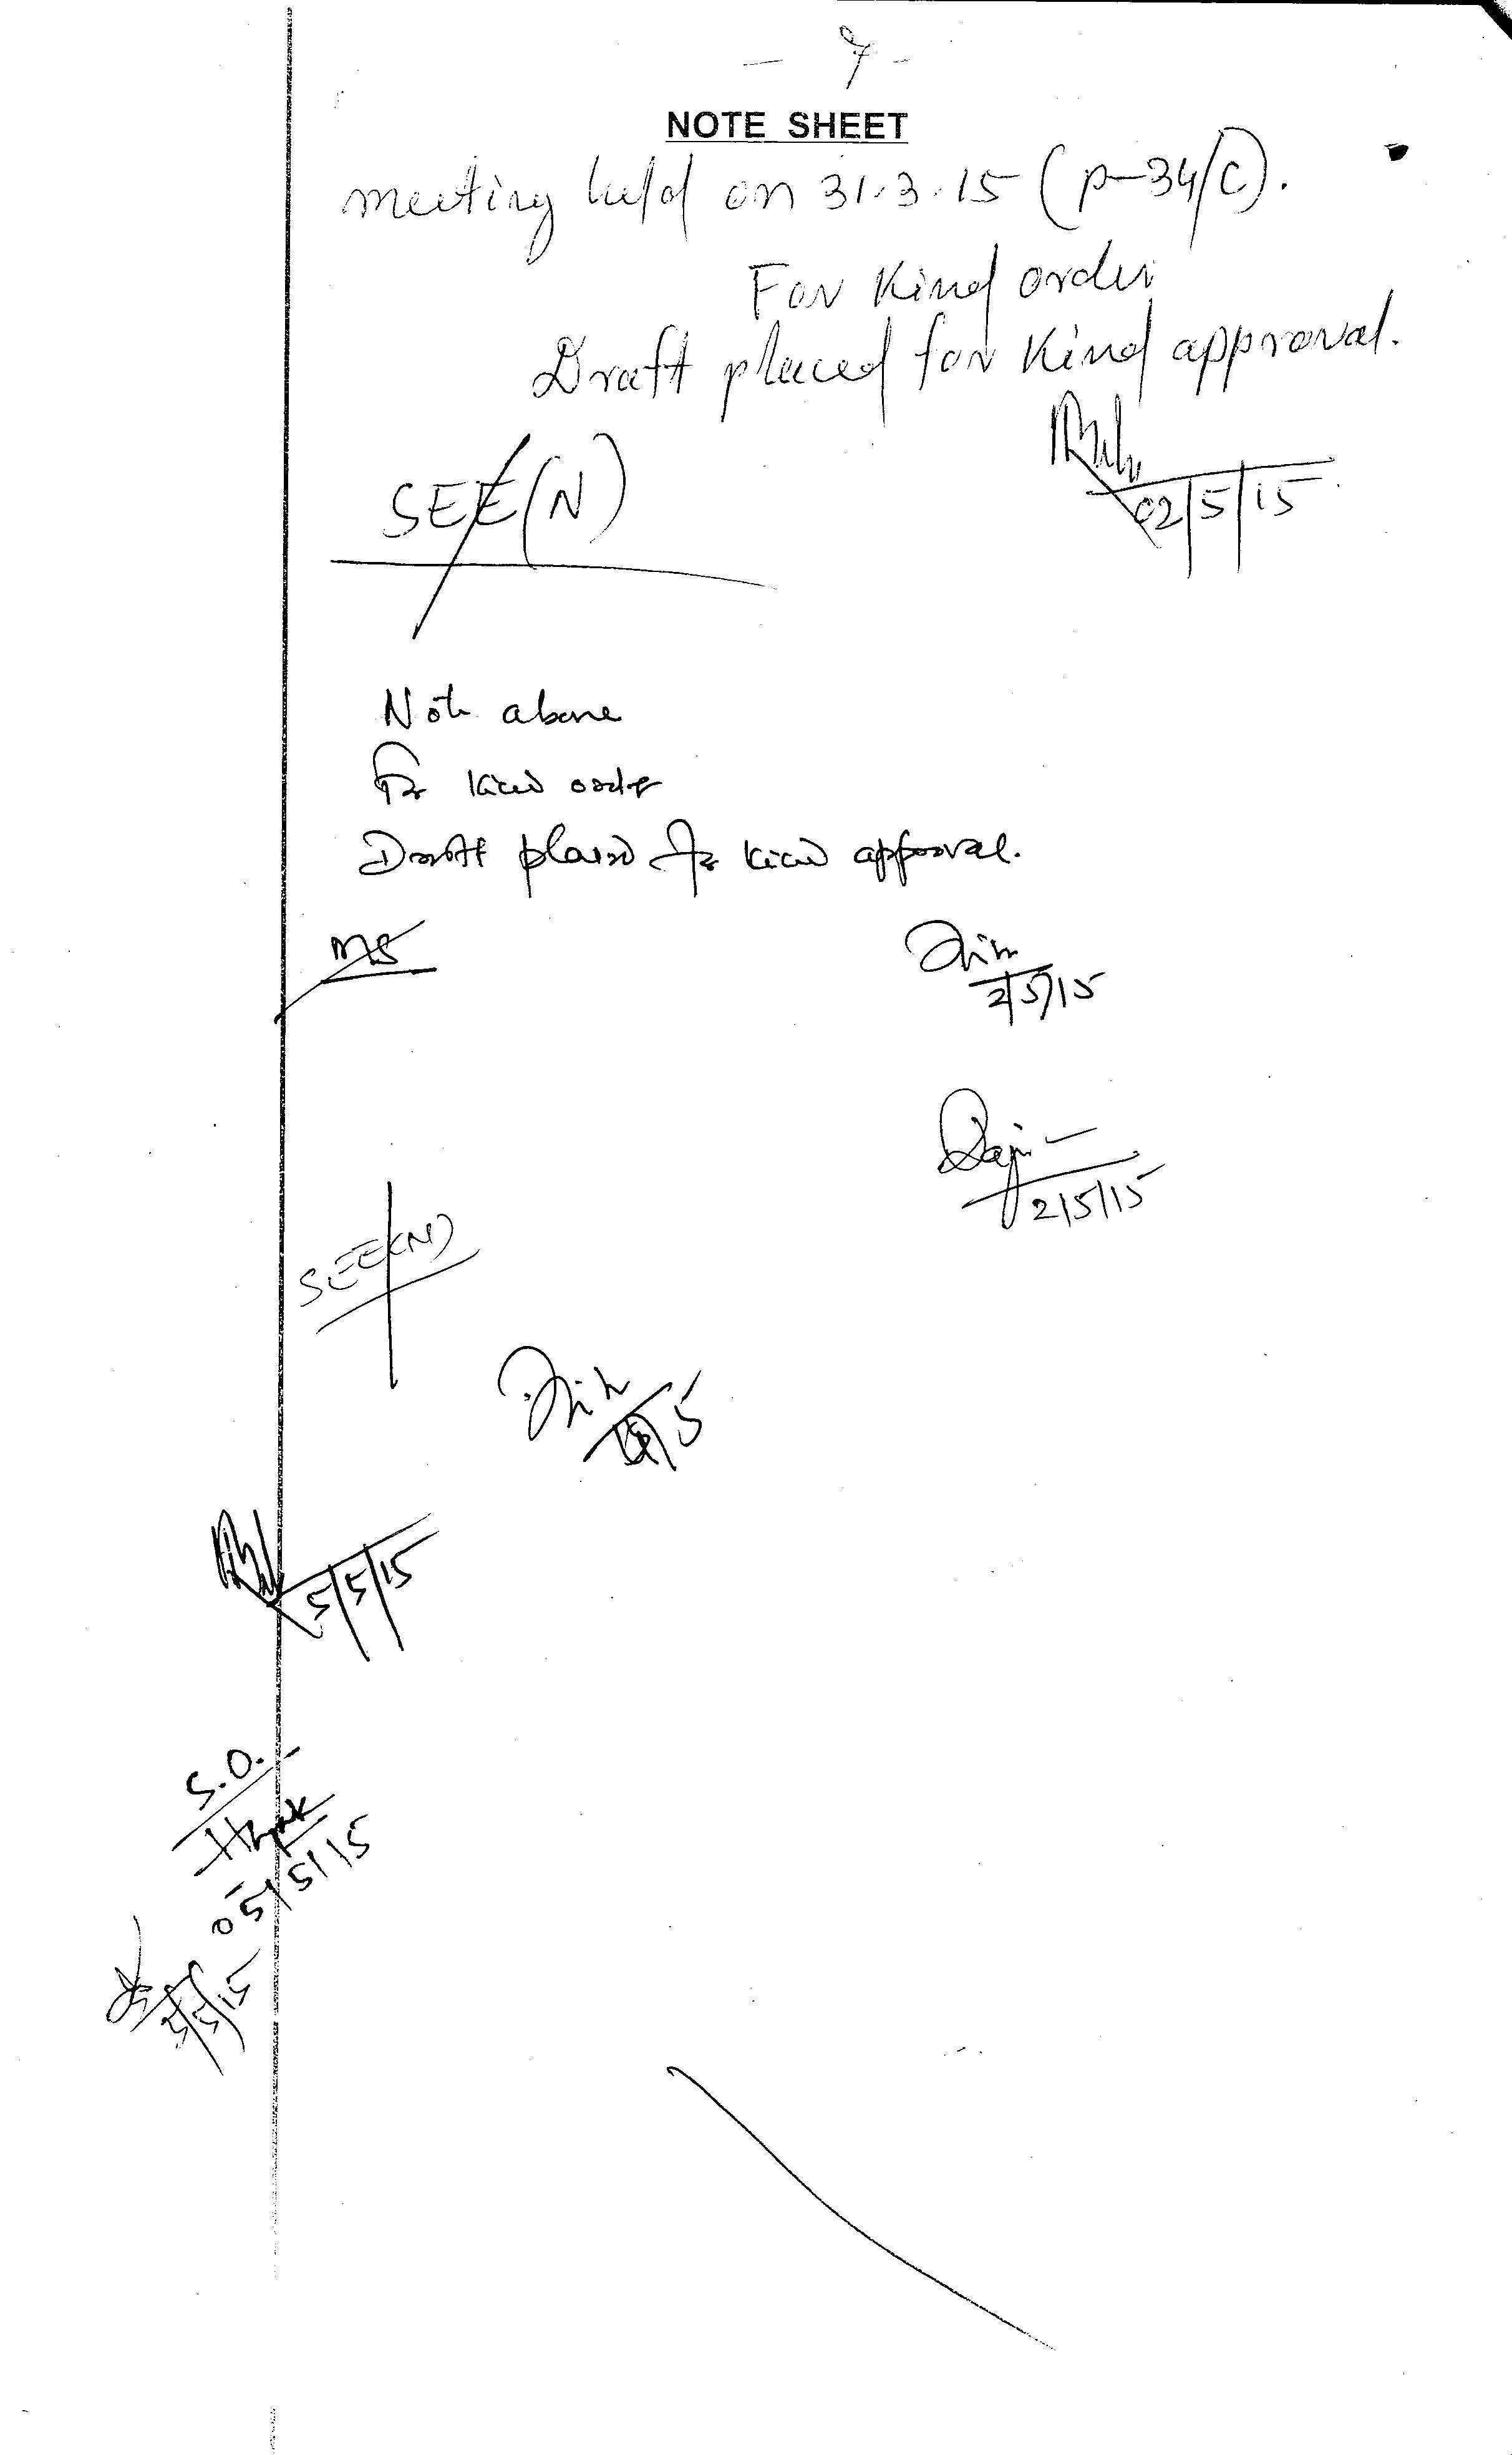 - 7 -
NOTE SHEET
meeting held on 31.3.15 (p-34/c).
For Kind order
Draft placed for Kind approval.
SEE(N)
02/5/15
Note above
For kind order
Draft placed for kind approval.
MS
2/5/15
2/5/15
SEE(N)
5/5/15
S.O.
05/5/15
5/5/15